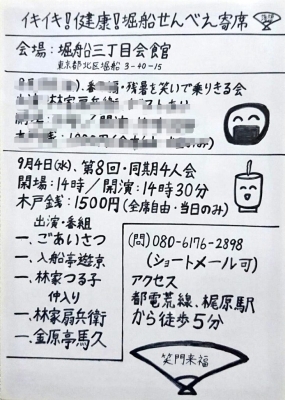 イキイキ!健康!堀船せんべえ寄席
会場:堀船三丁目会館
東京都北区堀船 3-40-15
・残暑も笑いで乗りきる会
9月4日(水)、第8回・同期4人会
開場:14時/開演:14時30分
木戸銭:1500円(全席自由・当日のみ)
出演・番組
一、ごあいさつ
一、入船亭遊京
一、林家つる子
仲入り
一、林家扇兵衛
一、金原亭馬久
(問)080-6176-2898
(ショートメール可)
アクセス
都電荒線、梶原駅
から徒歩5分
笑門来福